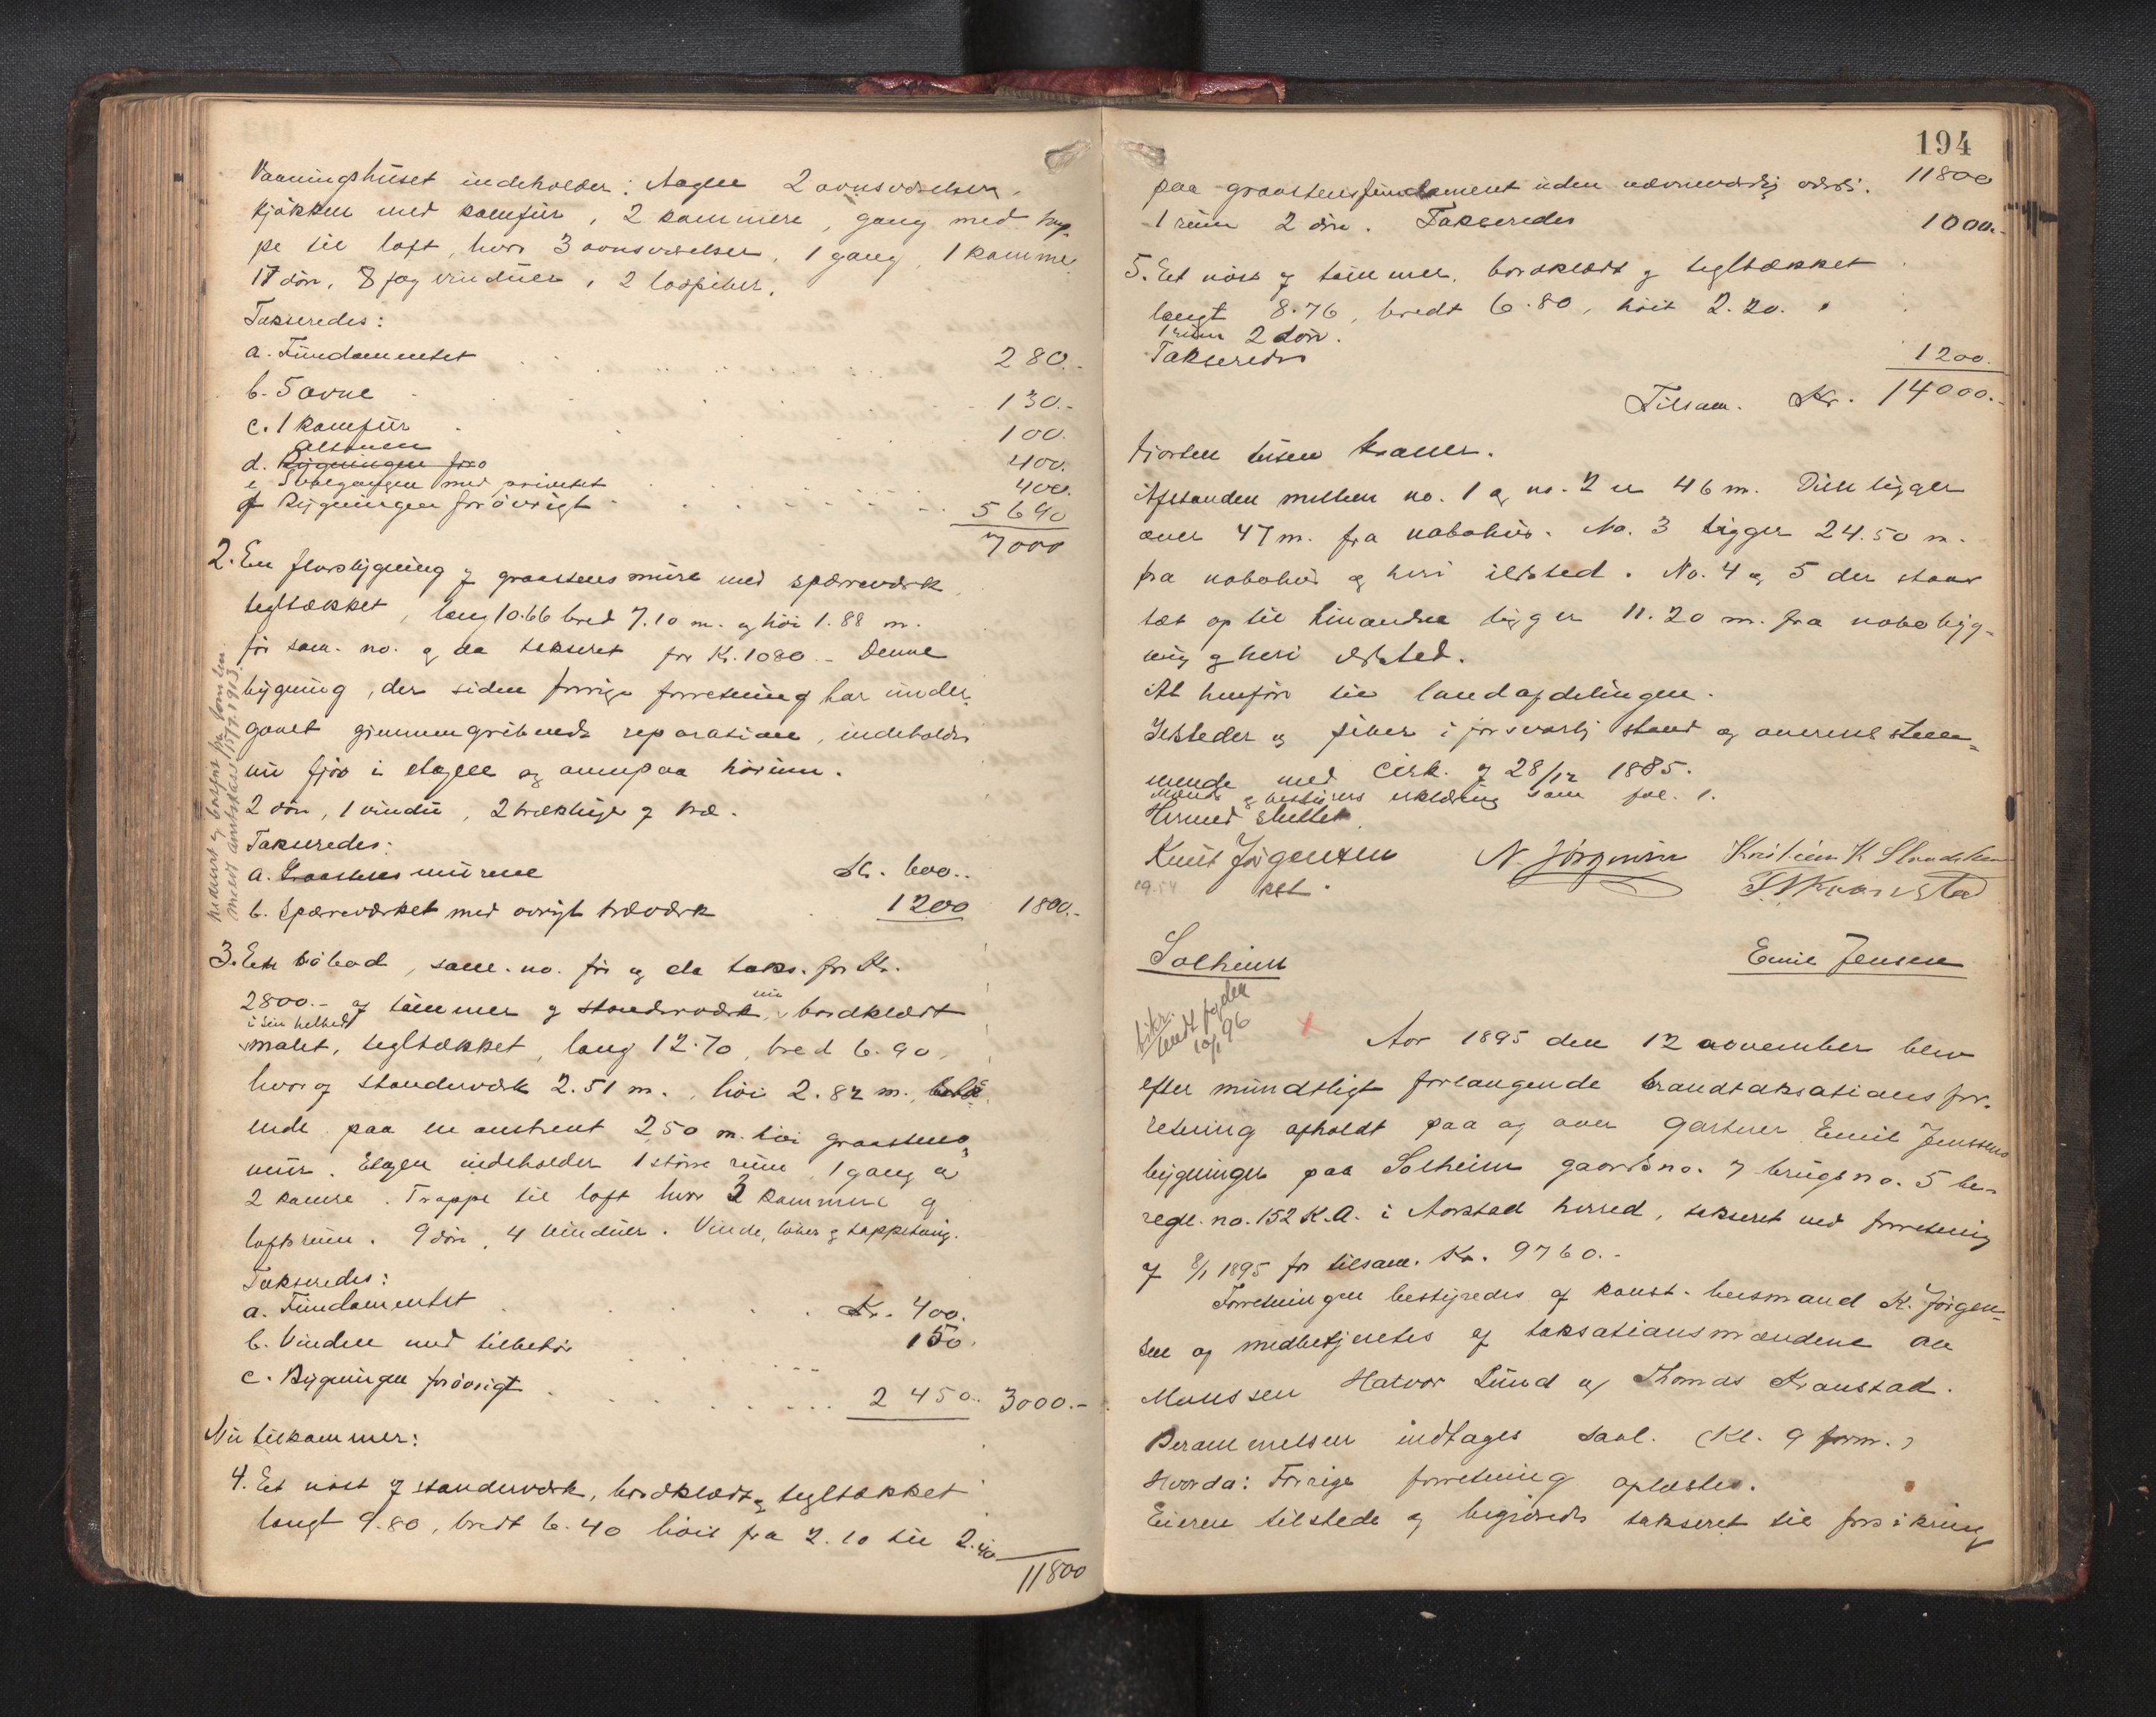 Vaaningshuset indeholder: Etagen 2 ovnsværelser,
kjøkken med komfur, 2 kammere, gang med trap-
pe til loft, hvor 3 ovnsværelser, 1 gang, 1 kammer
17 dør, 8 fag vinduer, 2 løspiber.
Takseredes:
a. Fundamentet 280.-
b. 5 ovne 130.-
c. 1 komfur 100.
altanen
d. Bygningen forø 400.
e Svalgangen med privetet 400.
f Bygningen forøvrigt 5690
7000
2. En florbygning af graastensmure med sperreværk
tegltækket, lang 10.66 bred 7.10 m. og høi 1.88 m.
før sam. no. og da takseret for Kr. 1080.- Denne
bygning, der siden forrige forretning har under-
gaaet gjennemgribende reparation, indeholder
nu fjøs i etagen og ovenpaa hørum.
2 dør, 1 vindu, 2 af træ.
Takseredes:
a. Graastens murene Kr. 600.-
b. Sperreværket med øvrigt træværk 1200 1800.-
3. En søbod, sam. no. før og da taks. for Kr.
2800.- af tømmer og standerværk, nu bordklædt
i sin helhed
malet, tegltækket, lang 12.70, bred 6.90,
hvoraf standerværk 2.51 m., høi 2.82 m.,
ende paa en 2.50 m. høi graastens-
mur. Etagen indeholder 1 større rum, 1 gang og
2 kamre. Trappe til loft hvor 3 kammere og
loftsrum. 9 dør, 4 vinduer. Vinde, løber og
Takseredes:
a. Fundamentet Kr. 400.
b. Vinden med tilbehør 150.
c. Bygningen forøvrigt 2450. 3000.-
Nu tilkommer:
4. Et nøst af standerværk, bordklædt og tegltækket
langt 9.80, bredt 6.40 høit fra 2.10 til 2.40
11800
nedrevet og bortført
meldt 15/7 1913.
194
paa graastensfundament uden nævneværdig værdi. 11800
1 rum 2 dør. Takseredes 1000.-
5. Et nøst af tømmer, bordklædt og tegltækket
langt 8.76, bredt 6.80, høit 2.20.
1 rum 2 dør.
Takseredes 1200.
Tilsam. Kr. 14000.-
Fjorten tusen kroner.
Afstanden mellem no. 1 og no. 2 er 46 m. Den ligger
over 47 m. fra nabohus. No. 3 ligger 24.50 m.
fra nabohus og heri ildsted. No. 4 og 5 der staar
tæt op til hinanden ligger 11.20 m. fra nabobyg-
ning og heri ildsted.
At henføre til landafdelingen.
Ildsteder og piber i forsvarlig stand og overensstem-
mende med Cirk. af 28/12 1885.
Mænds og bestyrers erklæring som fol. 1.
Hermed sluttet.
Knut Jørgensen N. Jørgensen Kristian K
kst.
19.54
Solheim Emil Jensen
sendt fogden
10/1 96
Aar 1895 den 12 november blev
efter mundtligt forlangende brandtaksationsfor-
retning afholdt paa og over Gartner Emil Jenssens
bygninger paa Solheim gaardsno. 7 brugsno. 5 be-
regl. no. 152 K.A. i Aarstad herred, takseret ved forretning
af 8/1 1895 for tilsam. Kr. 9760.-
Forretningen bestyredes af konst. lensmand K. Jørgen-
sen og medbetjentes af taksationsmændene Ole
Monssen Halvor Lund og Thomas Kronstad.
Berammelsen indtages saal. (Kl. 9 form.)
Hvorda: Forrige forretning oplæstes.
Eieren tilstede og begjærede takseret til forsikring